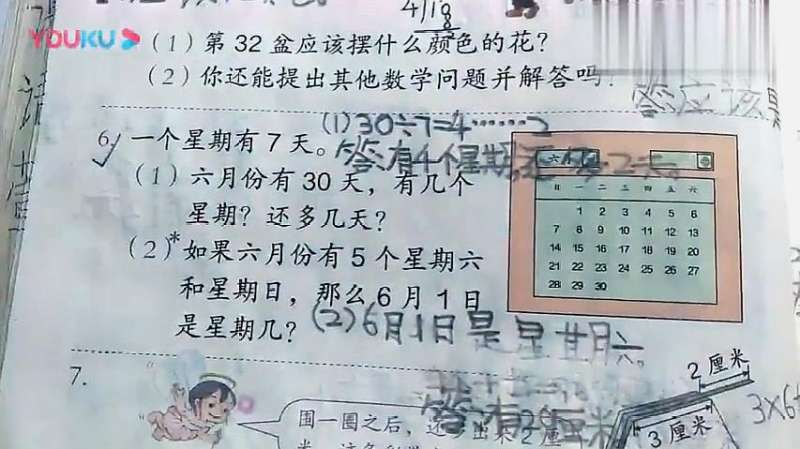 4 18
YOUKU
(1) 第 32 盆应该摆什么颜色的花?
(2) 你还能提出其他数学问题并解答吗.
答应该果
6. 一个星期有 7 天。
(1)30÷7=4……2
答:有4个星期,还多2天。
(1) 六月份有 30 天,有几个
星期?还多几天?
(2)*如果六月份有 5 个星期六
和星期日,那么 6 月 1 日
是星期几?
(2)6月1日是星期六。
日 一 二 三 四 五 六
1 2 3 4 5 6
7 8 9 10 11 12 13
14 15 16 17 18 19 20
21 22 23 24 25 26 27
28 29 30
7.
围一圈之后,还多出来 2 厘
2 厘米
3 厘米
3×6